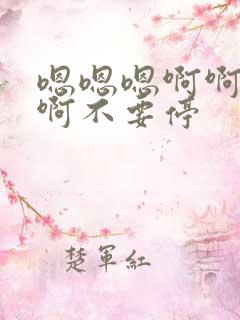 嗯嗯嗯啊啊
啊不要停
楚军红